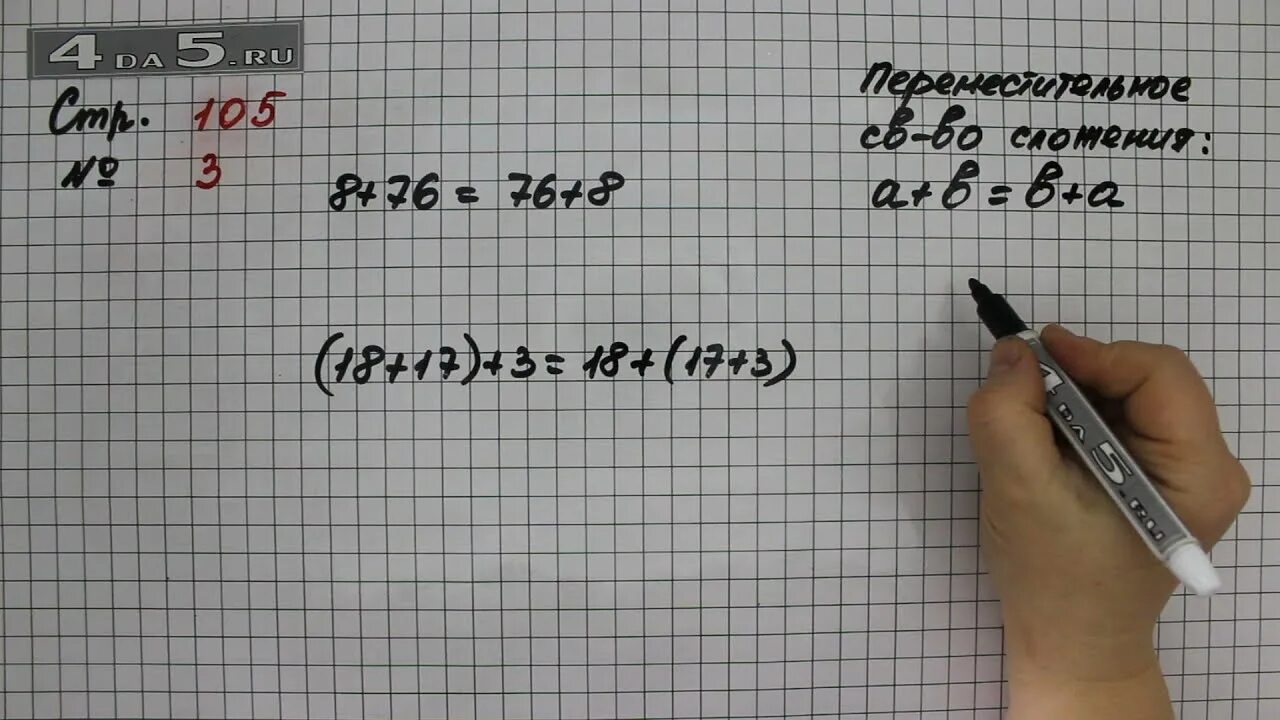 4DA5.RU
Стр. 105
№ 3
8+76 = 76+8
(18+17)+3 = 18+(17+3)
Переместительное
св-во сложения:
a+в = в+a
4DA5.RU